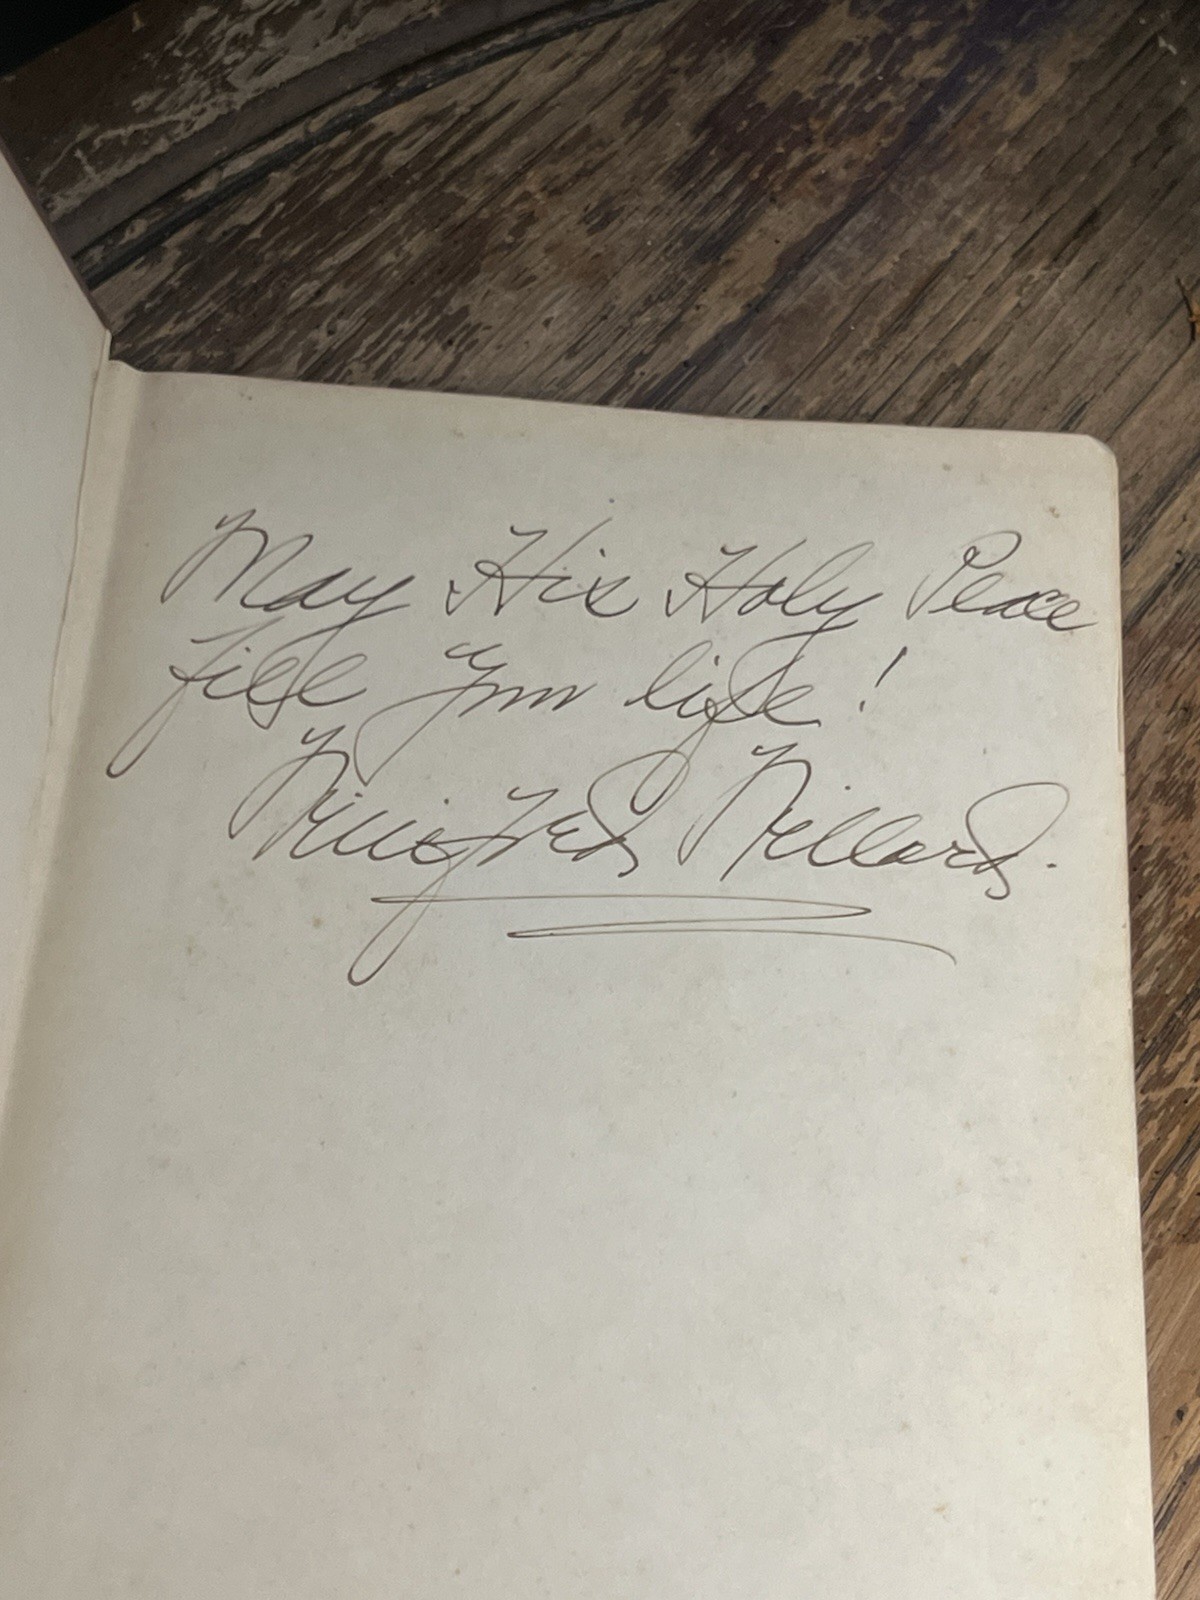 May His Holy Peace
fill your life!
Winifred Willard.